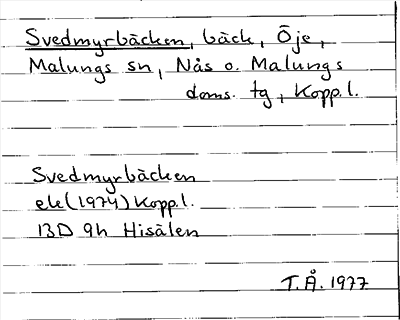 Svedmyrbäcken, bäck, Öje,
Malungs sn, Nås o. Malungs
doms. tg, Kopp.l.
Svedmyrbäcken
ek (1974) Kopp.l.
13D 9h Hisälen
T.Å. 1977